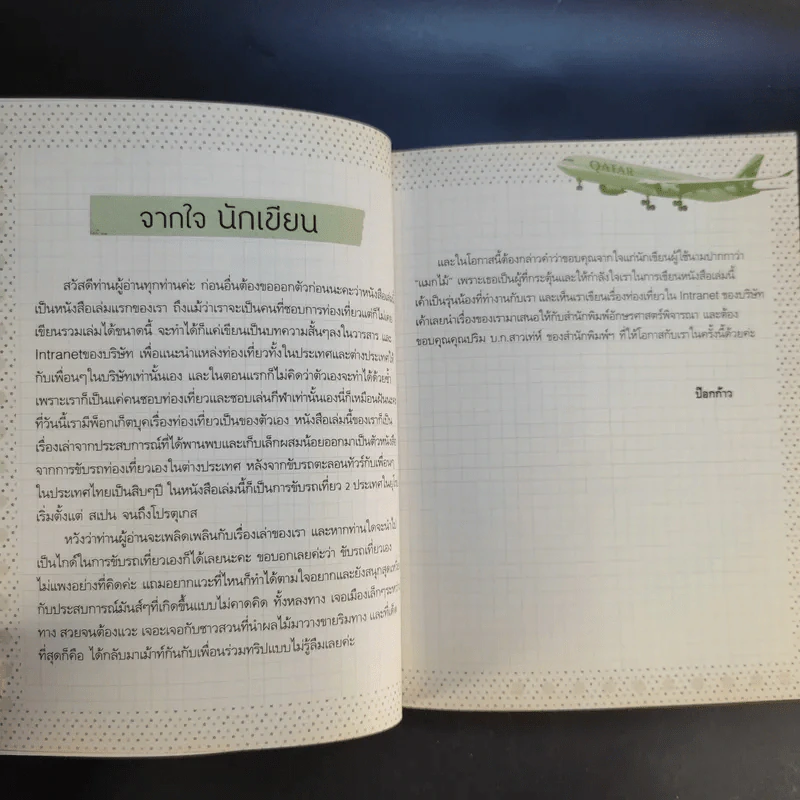 จากใจ นักเขียน
สวัสดีท่านผู้อ่านทุกท่านค่ะ ก่อนอื่นต้องขอออกตัวก่อนนะคะว่าหนังสือเล่มนี้
เป็นหนังสือเล่มแรกของเรา ถึงแม้ว่าเราจะเป็นคนที่ชอบการท่องเที่ยวแต่ก็ไม่เคย
เขียนรวมเล่มได้ขนาดนี้ จะทำได้ก็แค่เขียนเป็นบทความสั้นๆลงในวารสาร และ
Intranetของบริษัท เพื่อแนะนำแหล่งท่องเที่ยวทั้งในประเทศและต่างประเทศ
กับเพื่อนๆในบริษัทเท่านั้นเอง และในตอนแรกก็ไม่คิดว่าตัวเองจะทำได้ด้วยซ้ำ
เพราะเราก็เป็นแค่คนชอบท่องเที่ยวและชอบเล่นกีฬาเท่านั้นเองนี่ก็เหมือนฝันนะคะ
ที่วันนี้เรามีพ็อกเก็ตบุคเรื่องท่องเที่ยวเป็นของตัวเอง หนังสือเล่มนี้ของเราก็เป็น
เรื่องเล่าจากประสบการณ์ที่ได้พานพบและเก็บเล็กผสมน้อยออกมาเป็นตัวหนังสือ
จากการขับรถท่องเที่ยวเองในต่างประเทศ หลังจากขับรถตะลอนทัวร์กับเพื่อนๆ
ในประเทศไทยเป็นสิบๆปี ในหนังสือเล่มนี้ก็เป็นการขับรถเที่ยว 2 ประเทศในยุโรป
เริ่มตั้งแต่ สเปน จนถึงโปรตุเกส
หวังว่าท่านผู้อ่านจะเพลิดเพลินกับเรื่องเล่าของเรา และหากท่านใดจะนำไป
เป็นไกด์ในการขับรถเที่ยวเองก็ได้เลยนะคะ ขอบอกเลยค่ะว่า ขับรถเที่ยวเอง
ไม่แพงอย่างที่คิดค่ะ แถมอยากแวะที่ไหนก็ทำได้ตามใจอยากและยังสนุกสุดเหวี่ยง
กับประสบการณ์มันส์ๆที่เกิดขึ้นแบบไม่คาดคิด ทั้งหลงทาง เจอเมืองเล็กๆระหว่าง
ทาง สวยจนต้องแวะ เจอะเจอกับชาวสวนที่นำผลไม้มาวางขายริมทาง และที่เด็ด
ที่สุดก็คือ ได้กลับมาเม้าท์กันกับเพื่อนร่วมทริปแบบไม่รู้ลืมเลยค่ะ
QATAR
และในโอกาสนี้ต้องกล่าวคำว่าขอบคุณจากใจแก่นักเขียนผู้ใช้นามปากกาว่า
"แมกไม้" เพราะเธอเป็นผู้ที่กระตุ้นและให้กำลังใจเราในการเขียนหนังสือเล่มนี้
เค้าเป็นรุ่นน้องที่ทำงานกับเรา และเห็นเราเขียนเรื่องท่องเที่ยวใน Intranet ของบริษัท
เค้าเลยนำเรื่องของเรามาเสนอให้กับสำนักพิมพ์อักษรศาสตร์พิจารณา และต้อง
ขอบคุณคุณปริม บ.ก.สาวเท่ห์ ของสำนักพิมพ์ฯ ที่ให้โอกาสกับเราในครั้งนี้ด้วยค่ะ
ป๊อกก้าว